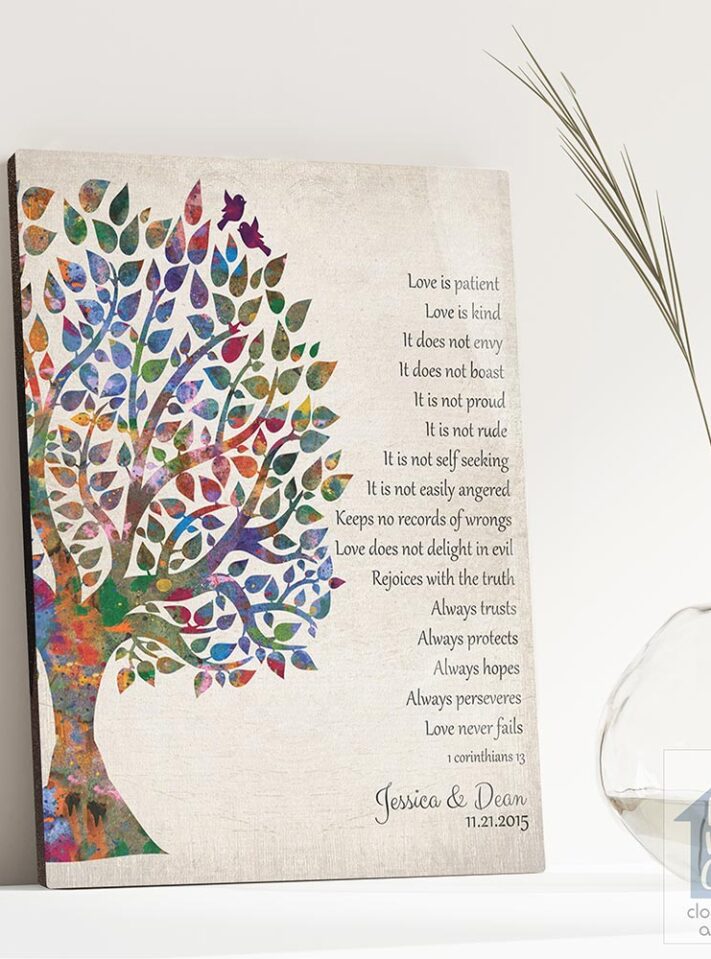 Love is patient
Love is kind
It does not envy
It does not boast
It is not proud
It is not rude
It is not self seeking
It is not easily angered
Keeps no records of wrongs
Love does not delight in evil
Rejoices with the truth
Always trusts
Always protects
Always hopes
Always perseveres
Love never fails
1 corinthians 13
Jessica & Dean
11.21.2015